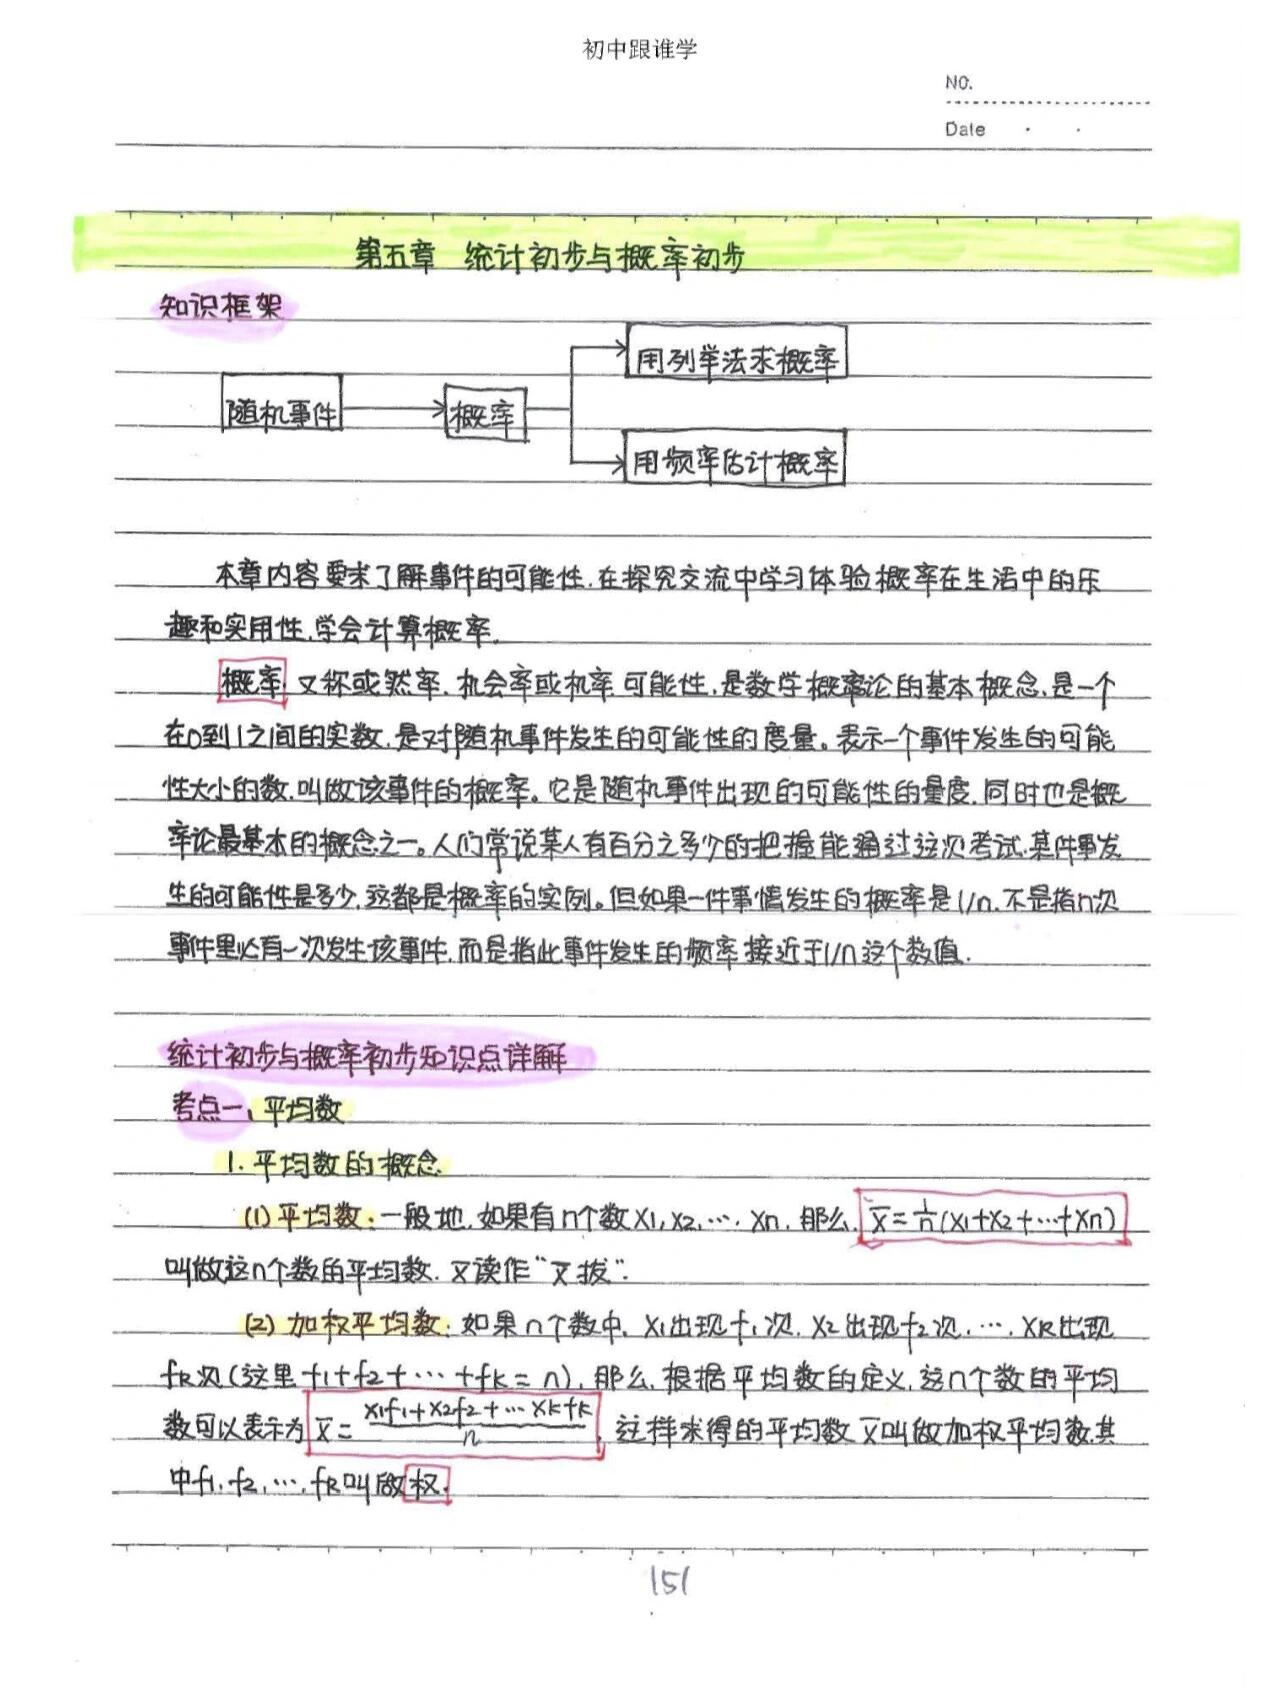 初中跟谁学
NO.
Date
第五章 统计初步与概率初步
知识框架
用列举法求概率
随机事件 概率
用频率估计概率
本章内容要求了解事件的可能性,在探究交流中学习体验概率在生活中的乐
趣和实用性,学会计算概率.
概率,又称或然率、机会率或机率、可能性,是数学概率论的基本概念,是一个
在0到1之间的实数,是对随机事件发生的可能性的度量。表示一个事件发生的可能
性大小的数,叫做该事件的概率。它是随机事件出现的可能性的量度,同时也是概
率论最基本的概念之一。人们常说某人有百分之多少的把握能通过这次考试,某件事发
生的可能性是多少,这都是概率的实例。但如果一件事情发生的概率是1/n,不是指n次
事件里必有一次发生该事件,而是指此事件发生的频率接近于1/n这个数值.
统计初步与概率初步知识点详解
考点一、平均数
1. 平均数的概念
(1) 平均数:一般地,如果有n个数x1,x2,…,xn,那么, x̅=1/n(x1+x2+…+xn)
叫做这n个数的平均数,x̅读作“x̅拔”.
(2) 加权平均数:如果n个数中,x1出现f1次,x2出现f2次,…,xk出现
fk次(这里f1+f2+…+fk=n),那么,根据平均数的定义,这n个数的平均
数可以表示为 x̅=(x1f1+x2f2+…xkfk)/n ,这样求得的平均数x̅叫做加权平均数,其
中f1,f2,…,fk叫做权.
151